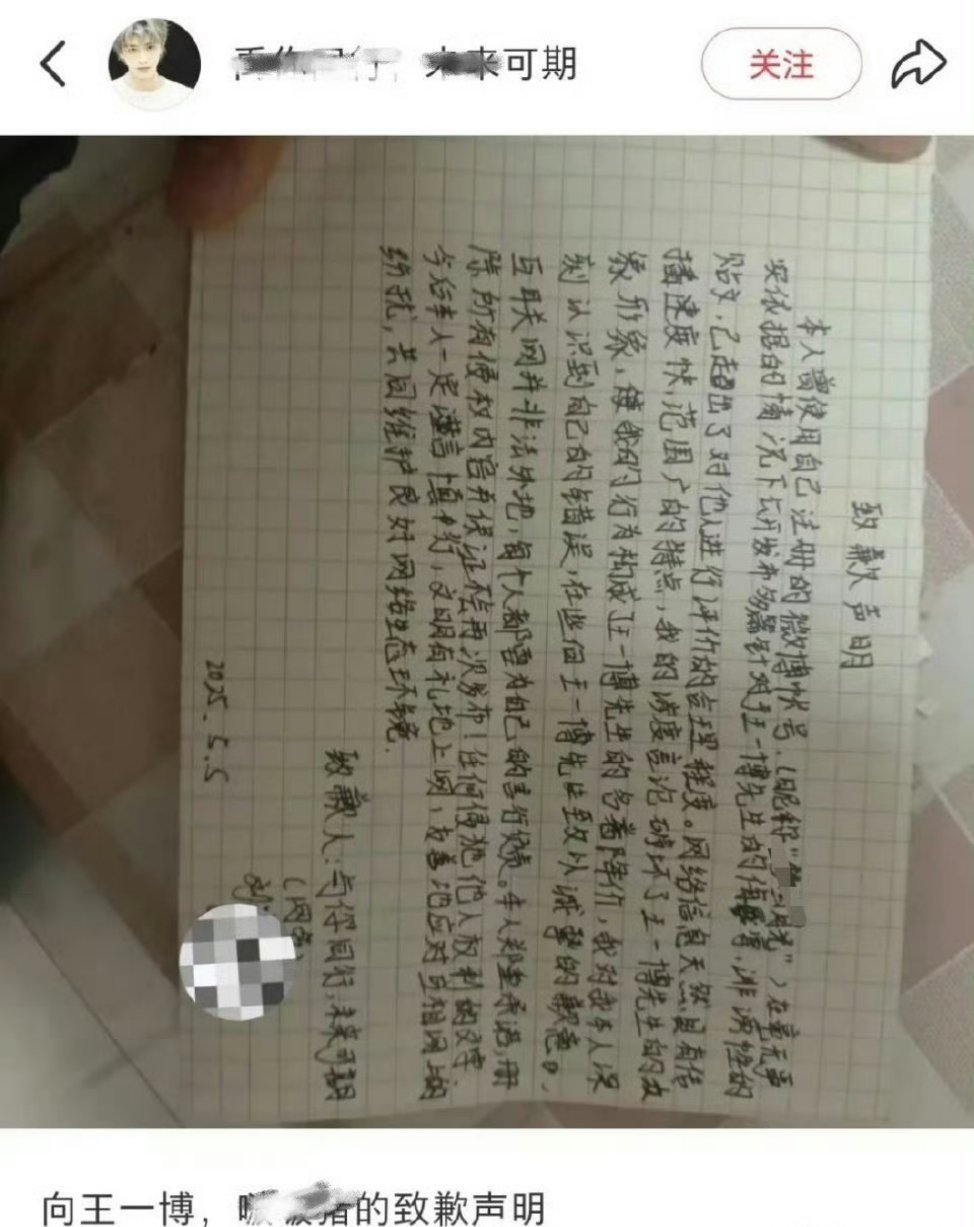 未来可期
关注
致歉声明
本人曾使用自己注册的微博帐号(昵称"光")在毫无事
实依据的情况下公开发布多篇针对王一博先生的侮辱、诽谤性的
贴文,已超出了对他人进行评价的合理程度。网络信息天然具有传
播速度快,范围广的特点,我的涉度言论破坏了王一博先生的公
众形象,使我的行为构成王一博先生的名誉降低,我对我本人深
刻认识到自己的错误,在此向王一博先生致以诚挚的歉意。
互联网并非法外地,每个人都要为自己的言行负责。本人郑重承诺,删
除所有侵权内容并保证不会再次发布!任何侵犯他人权利的文字.
今后本人一定谨言慎行,文明有礼地上网,友善地应对互相网上的
纷扰,共同维护良好网络生态环境.
致歉人:与你同行,未来可期
(网名)
2025.5.5
向王一博,的致歉声明